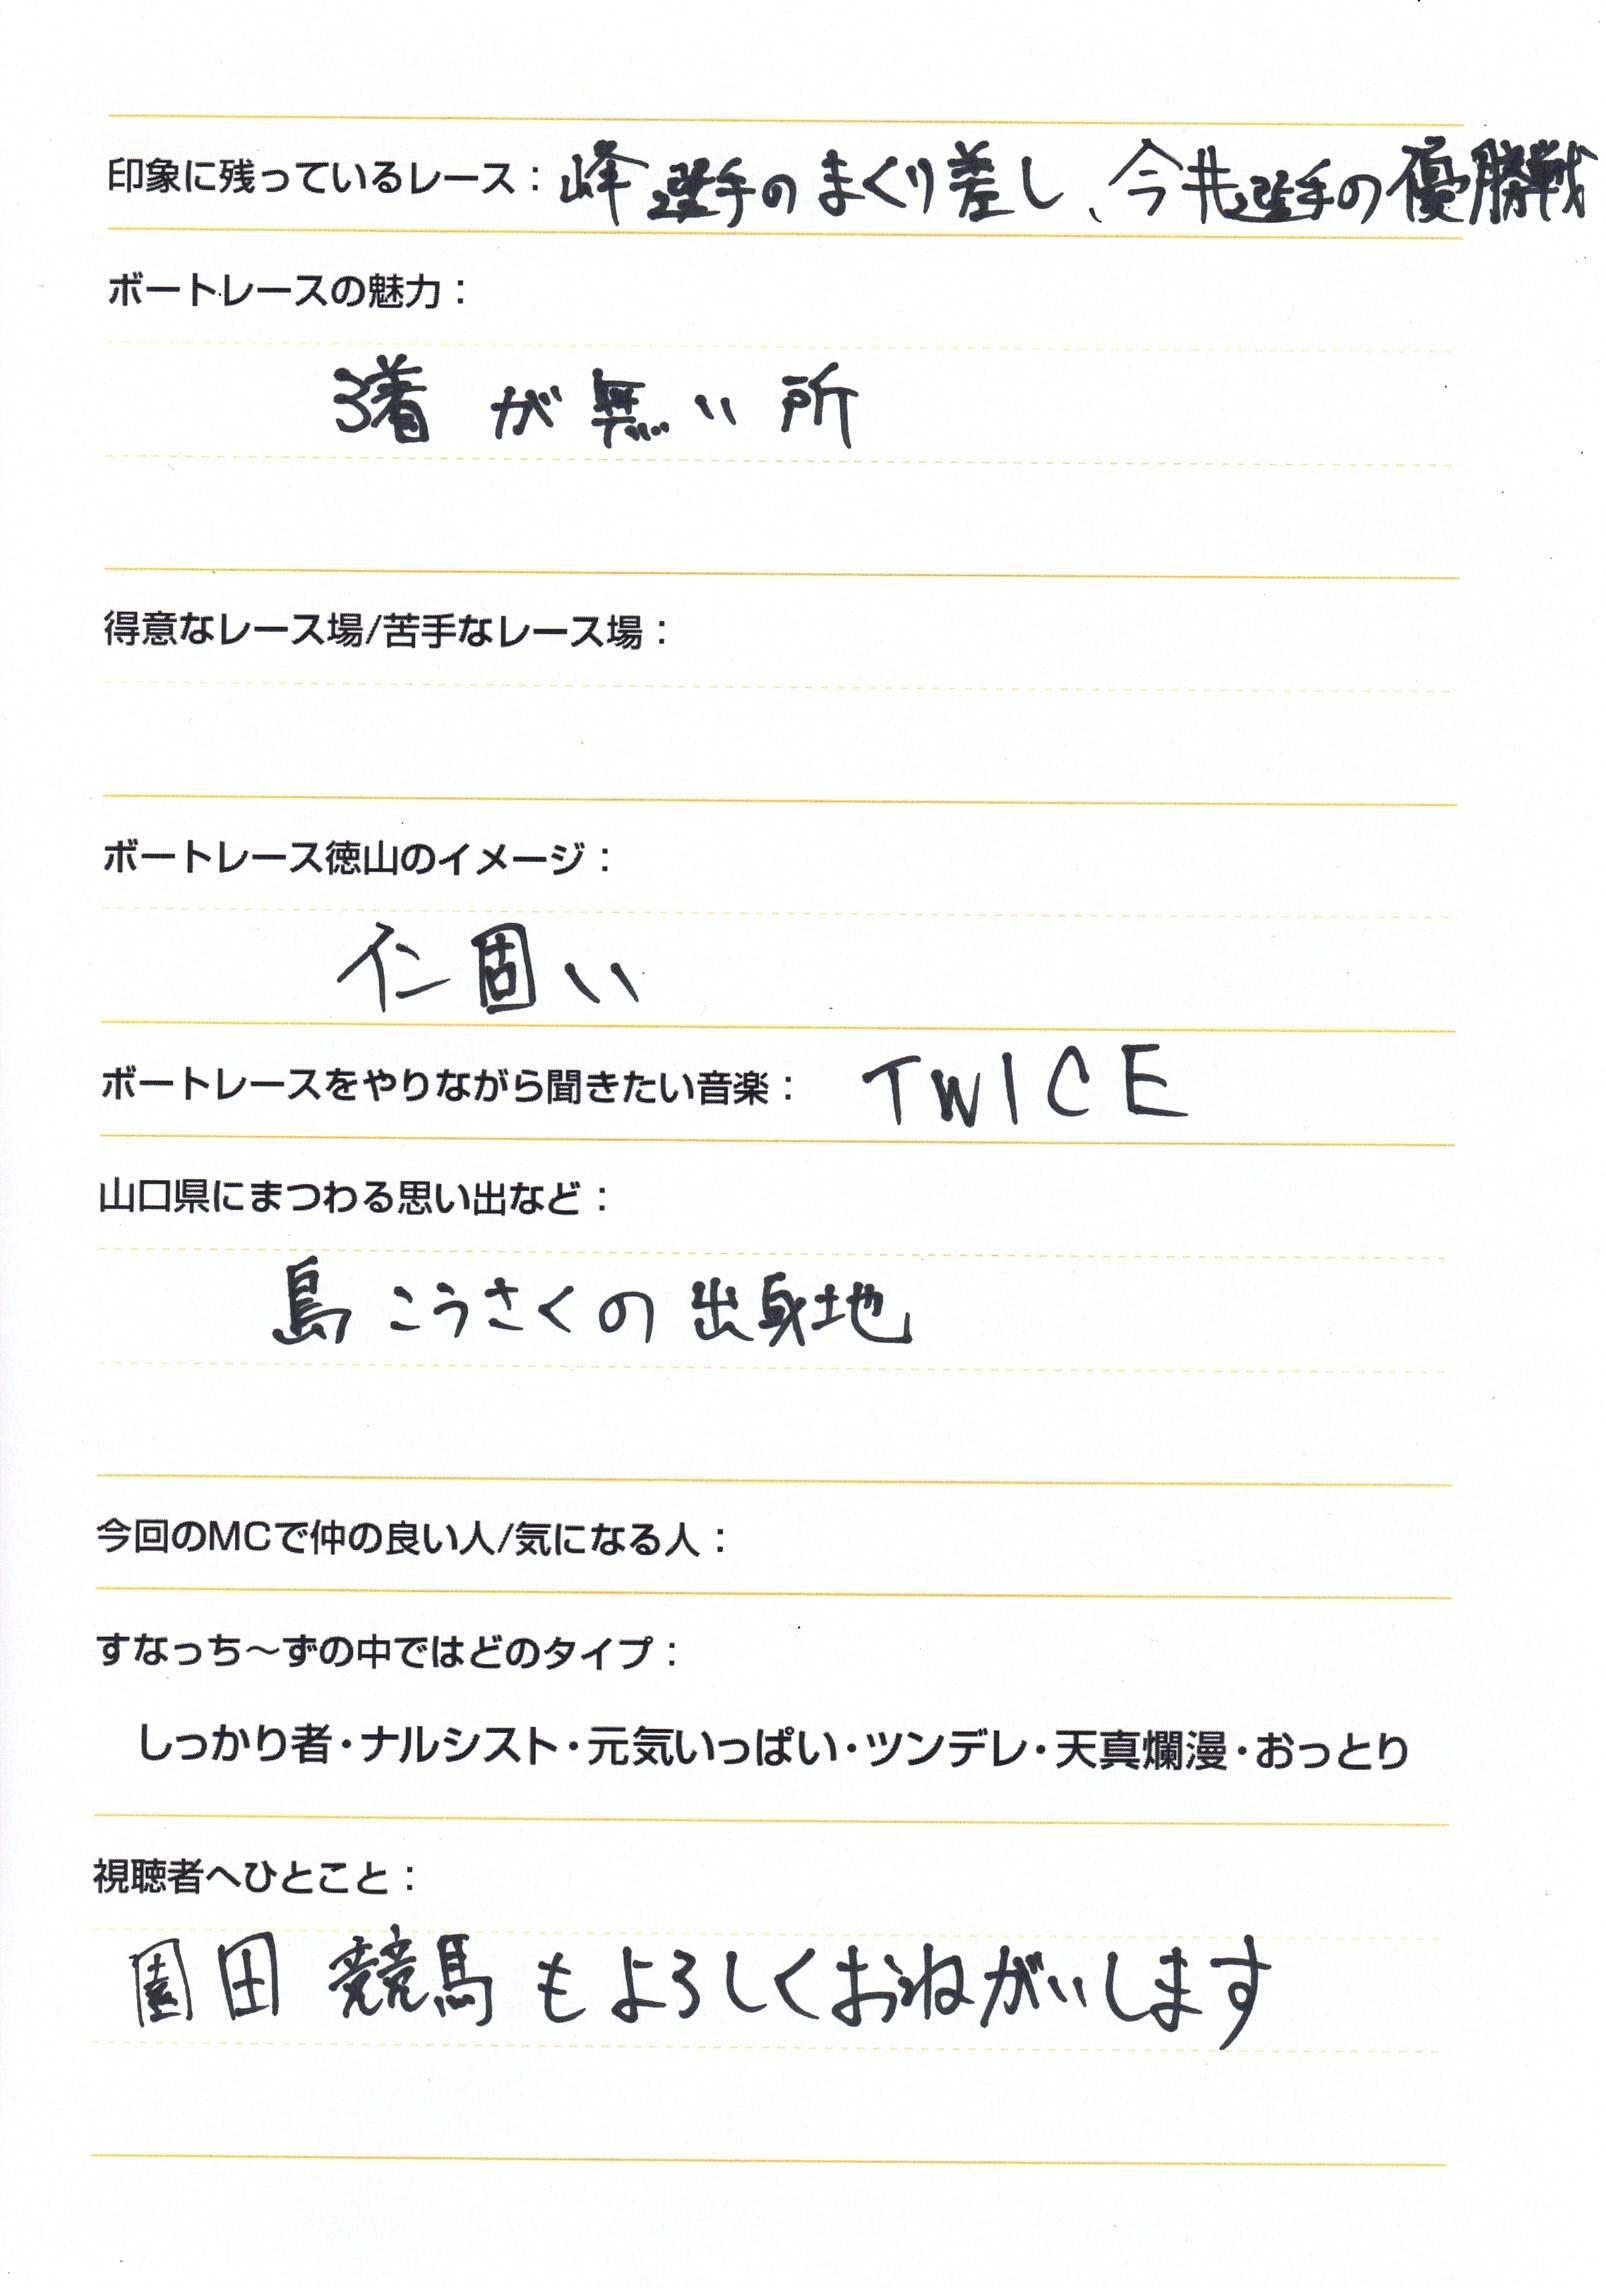 印象に残っているレース：峰選手のまくり差し、今井選手の優勝戦
ボートレースの魅力：
3着が無い所
得意なレース場/苦手なレース場：
ボートレース徳山のイメージ：
イン固い
ボートレースをやりながら聞きたい音楽： TWICE
山口県にまつわる思い出など：
島こうさくの出身地
今回のMCで仲の良い人/気になる人：
すなっち～ずの中ではどのタイプ：
しっかり者・ナルシスト・元気いっぱい・ツンデレ・天真爛漫・おっとり
視聴者へひとこと：
園田競馬もよろしくおねがいします